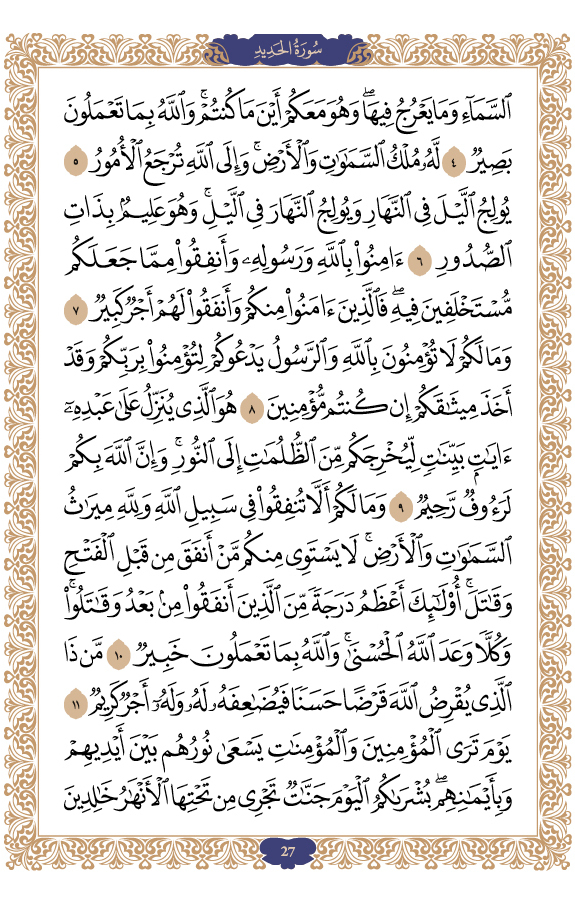 سُورَةُ الحَدِيدِ
ٱلسَّمَآءِ وَمَا يَعۡرُجُ فِيهَاۖ وَهُوَ مَعَكُمۡ أَيۡنَ مَا كُنتُمۡۚ وَٱللَّهُ بِمَا تَعۡمَلُونَ
بَصِيرٞ ٤ لَّهُۥ مُلۡكُ ٱلسَّمَٰوَٰتِ وَٱلۡأَرۡضِۚ وَإِلَى ٱللَّهِ تُرۡجَعُ ٱلۡأُمُورُ ٥
يُولِجُ ٱلَّيۡلَ فِي ٱلنَّهَارِ وَيُولِجُ ٱلنَّهَارَ فِي ٱلَّيۡلِۚ وَهُوَ عَلِيمُۢ بِذَاتِ
ٱلصُّدُورِ ٦ ءَامِنُواْ بِٱللَّهِ وَرَسُولِهِۦ وَأَنفِقُواْ مِمَّا جَعَلَكُم
مُّسۡتَخۡلَفِينَ فِيهِۖ فَٱلَّذِينَ ءَامَنُواْ مِنكُمۡ وَأَنفَقُواْ لَهُمۡ أَجۡرٞ كَبِيرٞ ٧
وَمَا لَكُمۡ لَا تُؤۡمِنُونَ بِٱللَّهِ وَٱلرَّسُولُ يَدۡعُوكُمۡ لِتُؤۡمِنُواْ بِرَبِّكُمۡ وَقَدۡ
أَخَذَ مِيثَٰقَكُمۡ إِن كُنتُم مُّؤۡمِنِينَ ٨ هُوَ ٱلَّذِي يُنَزِّلُ عَلَىٰ عَبۡدِهِۦٓ
ءَايَٰتِۭ بَيِّنَٰتٖ لِّيُخۡرِجَكُم مِّنَ ٱلظُّلُمَٰتِ إِلَى ٱلنُّورِۚ وَإِنَّ ٱللَّهَ بِكُمۡ
لَرَءُوفٞ رَّحِيمٞ ٩ وَمَا لَكُمۡ أَلَّا تُنفِقُواْ فِي سَبِيلِ ٱللَّهِ وَلِلَّهِ مِيرَٰثُ
ٱلسَّمَٰوَٰتِ وَٱلۡأَرۡضِۚ لَا يَسۡتَوِي مِنكُم مَّنۡ أَنفَقَ مِن قَبۡلِ ٱلۡفَتۡحِ
وَقَٰتَلَۚ أُوْلَٰٓئِكَ أَعۡظَمُ دَرَجَةٗ مِّنَ ٱلَّذِينَ أَنفَقُواْ مِنۢ بَعۡدُ وَقَٰتَلُواْۚ
وَكُلّٗا وَعَدَ ٱللَّهُ ٱلۡحُسۡنَىٰۚ وَٱللَّهُ بِمَا تَعۡمَلُونَ خَبِيرٞ ١٠ مَّن ذَا
ٱلَّذِي يُقۡرِضُ ٱللَّهَ قَرۡضًا حَسَنٗا فَيُضَٰعِفَهُۥ لَهُۥ وَلَهُۥٓ أَجۡرٞ كَرِيمٞ ١١
يَوۡمَ تَرَى ٱلۡمُؤۡمِنِينَ وَٱلۡمُؤۡمِنَٰتِ يَسۡعَىٰ نُورُهُم بَيۡنَ أَيۡدِيهِمۡ
وَبِأَيۡمَٰنِهِمۖ بُشۡرَىٰكُمُ ٱلۡيَوۡمَ جَنَّٰتٞ تَجۡرِي مِن تَحۡتِهَا ٱلۡأَنۡهَٰرُ خَٰلِدِينَ
27